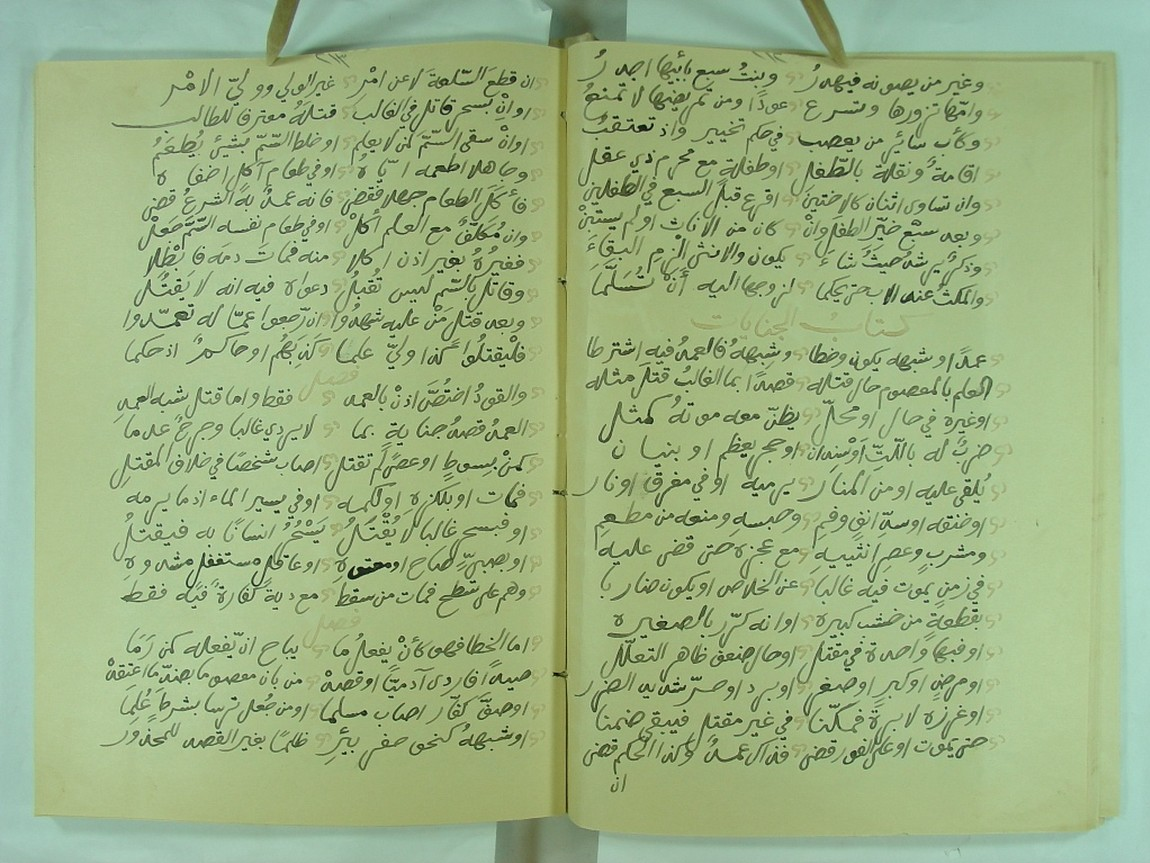 وغير من يصونه فيهدر وبنت سبع بابيها اجدر
وامها تزورها وتسرع عودا ومن تمريضها لا تمنع
وكأب سائر من يعصب في حكم تخيير واذ تعتقب
اقامة ونقلة بالطفل اوطفلة مع محرم ذي عقل
وان تساوى اثنان كالاختين اقرع قبل السبع في الطفلين
وبعد سبع خير الطفل وان كان من الاناث اولم يستبن
وذكر يرشد حيث شاء يكون والانثى الزم البقاء
والمكث عند الاب حتى يحكما لزوجها اليه أن تسلما
كتاب الجنايات
عمدا وشبهه يكون وخطا وشبهه فالعمد فيه اشترطا
العلم بالمعصوم حال قتله قصدا بما الغالب قتل مثله
اوغيره في حال او محل يظن معه موته كمثل
ضرب له باللت او سندان او حجر يعظم او بنيان
يلقى عليه او من المنار يرميه او في مغرق او نار
او خنقه او سد انف وفم وحبسه ومنعه من مطعم
ومشرب وعصر انثييه مع عجزه حتى قضى عليه
في زمن يموت فيه غالبا عن الخلاص او يكون ضاربا
بقطعة من خشب كبيره او انه كرر بالصغيره
او فيها واحدة في مقتل او حال ضعف ظاهر التعلل
او مرض او كبر او صغر او برد او حر شديد الضرر
او غرزه لابرة فمكنا في غير مقتل فيبقى ضمنا
حتى يموت او على الفور قضى فذاك عمد وكذا الحكم قضى
ان
ان قطع السلعة لا عن امر غير الولي وولي الامر
او ان بسحر قاتل في الغالب قتله معترفا للطالب
او ان سقى السم لمن لا يعلم او خلط السم بشيئ يطعم
وجاهلا اطعمه اياه او في طعام آكل اخفاه
فأكل الطعام جهلا فقضى فانه عمد به الشرع قضى
وان مكلف مع العلم أكل او في طعام نفسه السم جعل
فغيره بغير اذن اكلا منه فمات دمه قد بطلا
وقاتل بالسم ليس تقبل دعواه فيه انه لا يقتل
وبعد قتل من عليه شهدوا ان رجعوا عما له تعمدوا
فليقتلوا كذا ولي علما كذبهم او حاكم اذ حكما
فصل
والقود اختص اذن بالعمد فقط واما قتل شبه العمد
العمد قصد جناية بما لا يردي غالبا وجرح عدما
كمن بسوط او عصى لم تقتل اصاب شخصا في خلاف المقتل
فمات او بلكزه او لكمه او في يسير الماء اذ ما يرمه
او فبسحر غالبا لا يقتل يسحر انسانا به فيقتل
او بصبي صاح او معتوه او عاقل مستغفل مشدوه
وهم على سطح فمات من سقط مع دية كفارة فيه فقط
فصل
اما الخطا فهو كأن يفعل ما يباح ان يفعله كمن رما
صيدا فاردى آدميا او قصد من بان معصوما بضد ما اعتقد
او صف كفار اصاب مسلما او من جعل ترسا بشرط علما
او شبهه كنحو حفر بئر ظلما بغير القصد للمحذور